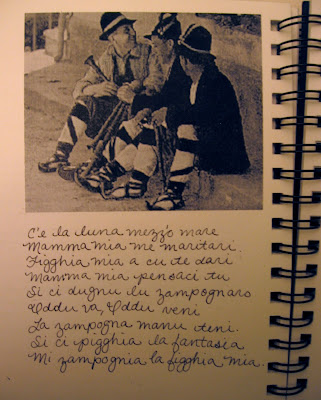 C'e la luna mezz'o mare
Mamma mia me maritari.
Figghia mia a cu te dari
Mamma mia pensaci tu
Si ci dugnu lu zampognaro
Iddu va Iddu veni
La zampogna manu teni.
Si ci pigghia la fantasia
Mi zampognia la figghia mia.